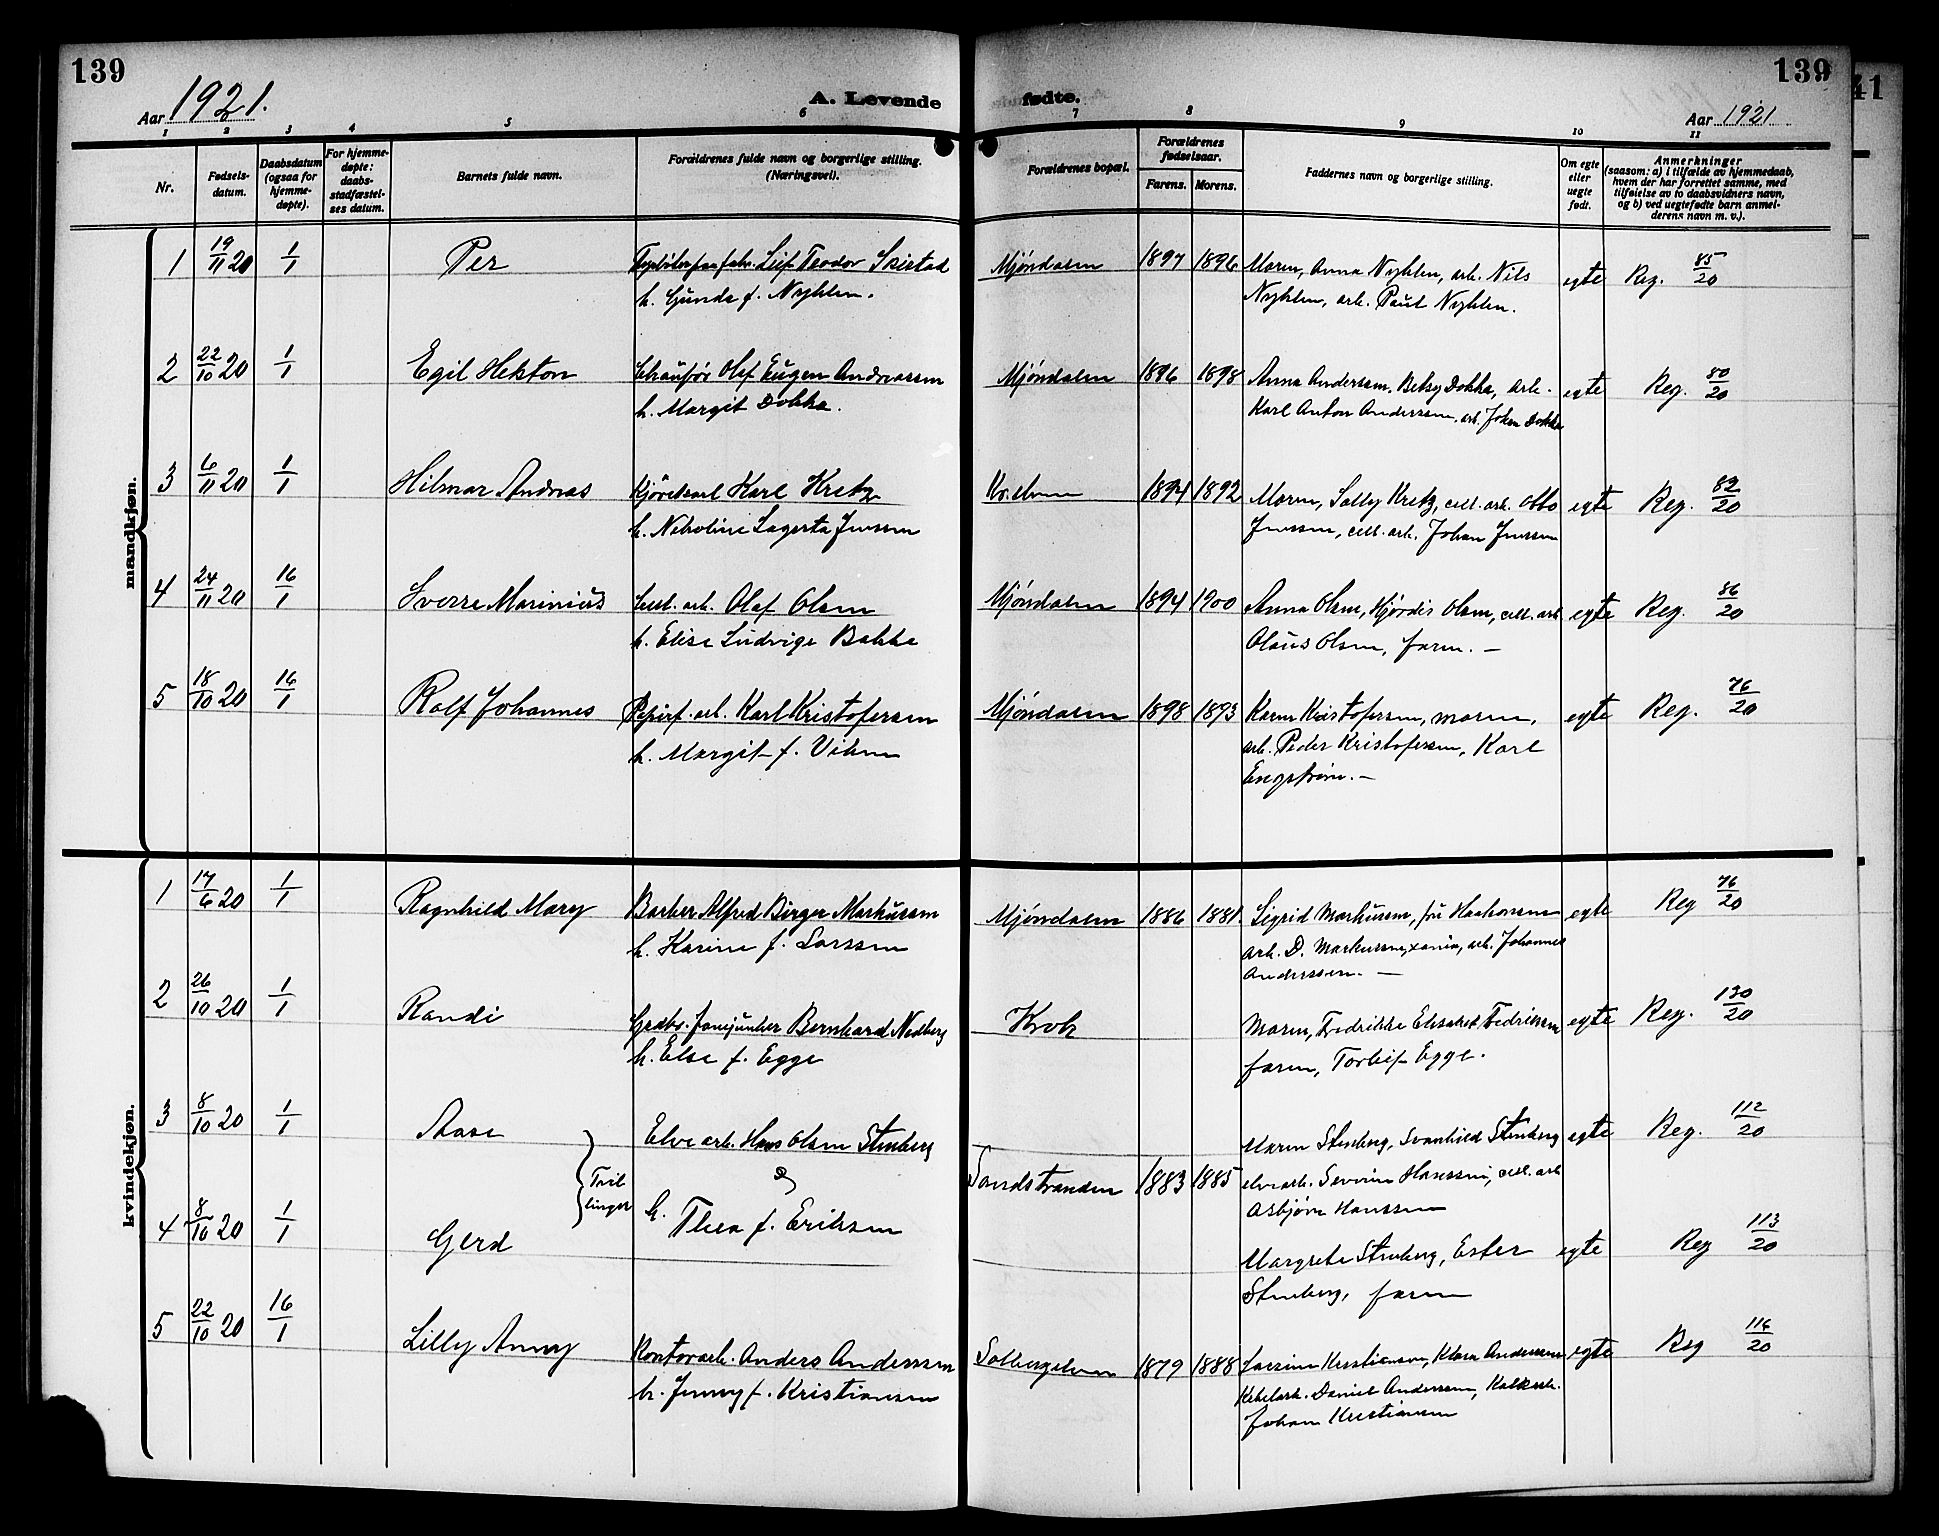 139
139
Aar 1921.
A. Levende
fødte.
Aar 1921
1 2 3 4 5 6 7 8 9 10 11
Nr.
Fødsels-
datum.
Daabsdatum
(ogsaa for
hjemme-
døpte).
For hjemme-
døpte:
daabs-
stadfæstel-
ses datum.
Barnets fulde navn.
Forældrenes fulde navn og borgerlige stilling.
(Næringsvei).
Forældrenes bopæl.
Forældrenes
fødselsaar.
Farens. Morens.
Faddernes navn og borgerlige stilling.
Om egte
eller
uegte
født.
Anmerkninger
(saasom: a) i tilfælde av hjemmedaab,
hvem der har forrettet samme, med
tilføielse av to daabsvidners navn,
og b) ved uegtefødte barn anmel-
derens navn m. v.).
mandkjøn.
1 19/11 20 1/1 Per Leif Teodor Skistad Mjøndalen 1897 1896 Moren, Anna Nyhlen, arb. Nils egte Reg. 85/20
h. Gunda f. Nyhlen. Nyhlen, arb. Paul Nyhlen.
2 22/10 20 1/1 Egil Hekton Chauffør Olaf Eugen Andreassen Mjøndalen 1896 1898 Anna Andersen, Betsy Dokka, arb. egte Reg. 80/20
h. Margit Dokka. Karl Anton Anderssen, arb. Johan Dokka
3 6/11 20 1/1 Hilmar Andreas Kjørekarl Karl Kretz 1894 1892 Moren, Solly Kretz, cell. arb. Otto egte Reg. 82/20
h. Nikoline Lagerta Jenssen Jenssen, cell. arb. Johan Jenssen
4 24/11 20 16/1 Sverre Marinius Cell. arb. Olaf Olsen Mjøndalen 1894 1900 Anna Olsen, Hjørdis Olsen, cell. arb. egte Reg. 86/20
h. Elise Ludvige Bakke Olaus Olsen, faren. —
5 18/10 20 16/1 Rolf Johannes Papirf. arb. Karl Kristofersen Mjøndalen 1898 1893 Karen Kristofersen, moren, egte Reg. 76/20
h. Margit f. Viken arb. Peder Kristofersen, Karl
Engstrøm. —
kvindekjøn.
1 17/6 20 1/1 Ragnhild Mary Barber Alfred Birger Markussen Mjøndalen 1886 1881 Sigrid Markussen, fru Haakonsen egte Reg 76/20
h. Karine f. Larssen arb. D. Markussen, xania, arb. Johannes
Anderssen. —
2 26/10 20 1/1 Randi Bernhard Nedberg Krok Moren, Fredrikke Elisabet Fredriksen egte Reg. 130/20
h. Else f. Egge faren, Torleif Egge.
3 8/10 20 1/1 Aase Elvearb. Hans Olsen Stenberg Maren Stenberg, Svanhild Stenberg egte Reg. 112/20
Tvil
linger & Sandstranden 1883 1885 elvearb. Severin Hanssen, cell. arb
Asbjørn Hanssen
4 8/10 20 1/1 Gerd h. Thea f. Eriksen Margrete Stenberg, Ester egte Reg 113/20
Stenberg, faren
5 22/10 20 16/1 Lilly Anny Kontorarb. Anders Anderssen Solbergelven 1879 1888 Kristiansen, Klara Anderssen egte Reg 116/20
h. Jenny f. Kristiansen Daniel Anderssen,
Johan Kristiansen
41